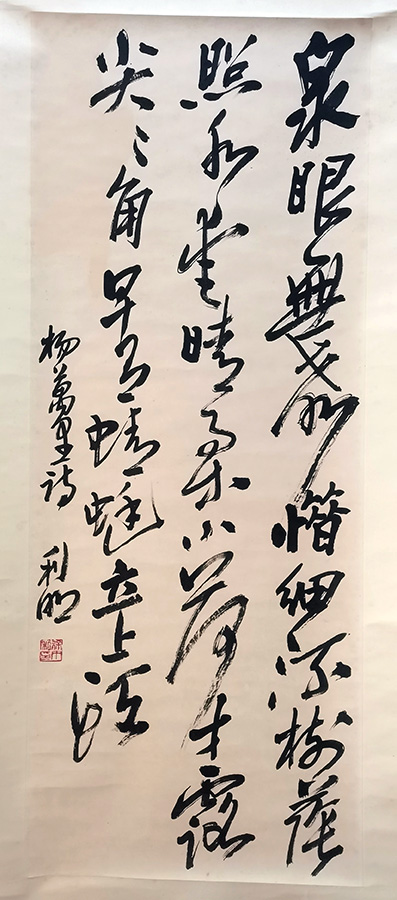 泉眼無声惜細流樹蔭
照水愛晴柔小荷才露
尖〻角早有蜻蜓立上頭
杨萬里詩 利明